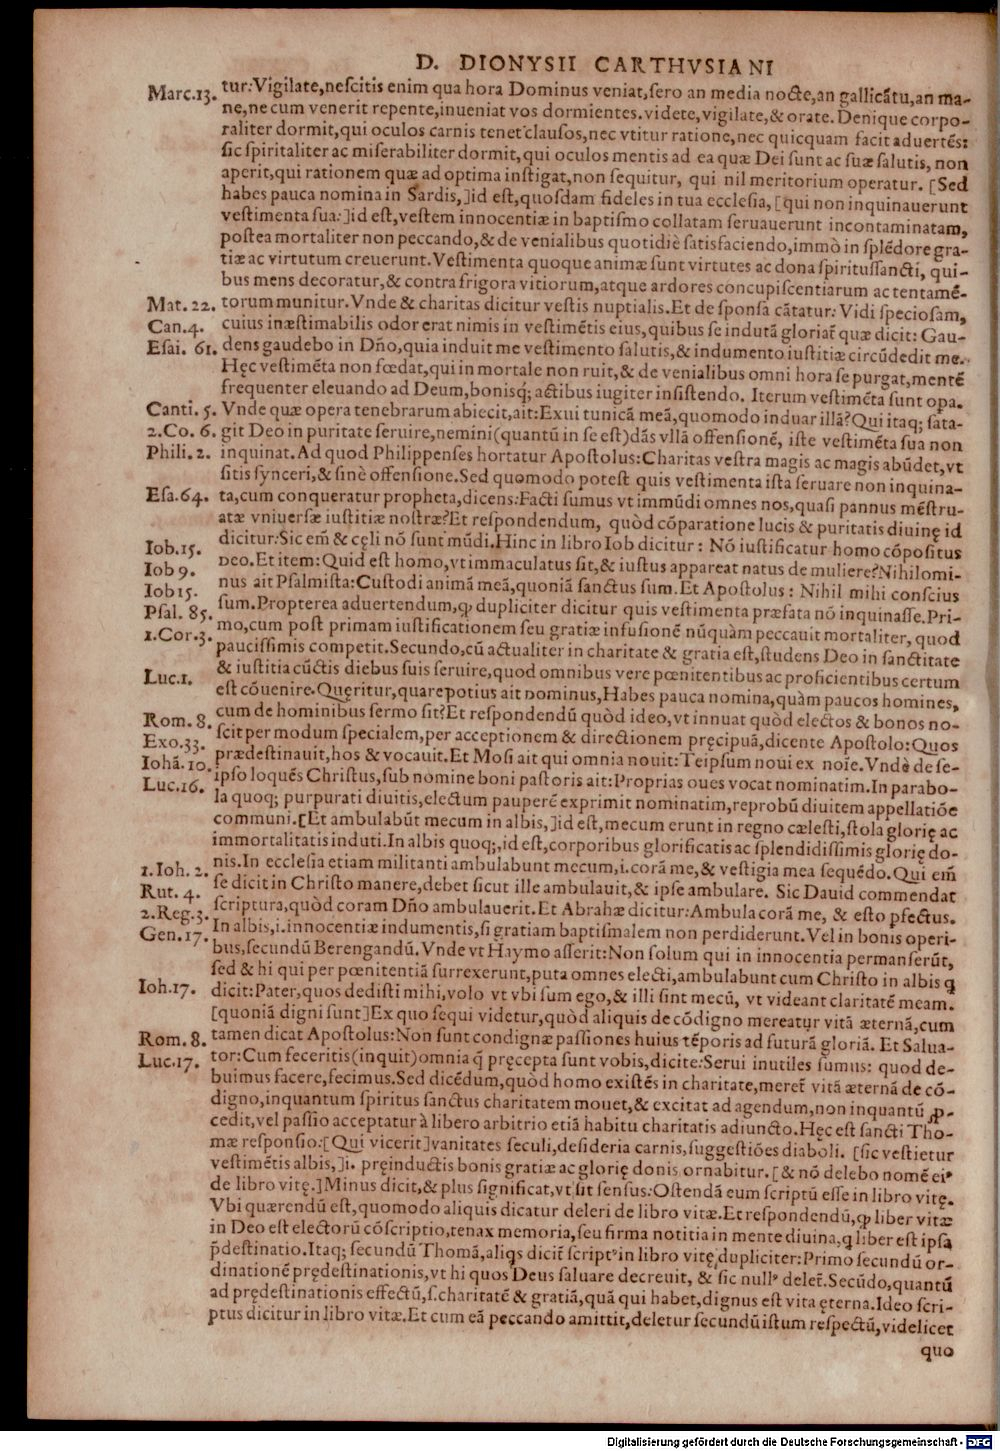 D. DIONYSII CARTHVSIANI
Marc.13. tur:Vigilate,neſcitis enim qua hora Dominus veniat,ſero an media nocte,an gallicātu,an ma-
ne,ne cum venerit repente,inueniat vos dormientes.videte,vigilate,& orate. Denique corpo-
raliter dormit,qui oculos carnis tenet clauſos,nec vtitur ratione,nec quicquam facit aduertēs:
ſic ſpiritaliter ac miſerabiliter dormit,qui oculos mentis ad ea quæ Dei ſunt ac ſuæ ſalutis, non
aperit,qui rationem quæ ad optima inſtigat,non ſequitur, qui nil meritorium operatur. [Sed
habes pauca nomina in Sardis,]id eſt,quoſdam fideles in tua eccleſia,[qui non inquinauerunt
veſtimenta ſua:]id eſt,veſtem innocentiæ in baptiſmo collatam ſeruauerunt incontaminatam,
poſtea mortaliter non peccando,& de venialibus quotidiè ſatisfaciendo,immò in ſplēdore gra-
tiæ ac virtutum creuerunt.Veſtimenta quoque animæ ſunt virtutes ac dona ſpirituſſancti, qui-
bus mens decoratur,& contra frigora vitiorum,atque ardores concupiſcentiarum ac tentamē-
Mat. 22. torum munitur.Vnde & charitas dicitur veſtis nuptialis.Et de ſponſa cātatur: Vidi ſpecioſam,
Can.4. cuius inæſtimabilis odor erat nimis in veſtimētis eius,quibus ſe indutā gloriat᷑ quæ dicit: Gau-
Eſai. 61. dens gaudebo in Dño,quia induit me veſtimento ſalutis,& indumento iuſtitiæ circūdedit me.
Hęc veſtimēta non fœdat,qui in mortale non ruit,& de venialibus omni hora ſe purgat,mentē
frequenter eleuando ad Deum,bonisq́; actibus iugiter inſiſtendo. Iterum veſtimēta ſunt opa.
Canti. 5. Vnde quæ opera tenebrarum abiecit,ait:Exui tunicā meā,quomodo induar illā?Qui itaq; ſata-
2.Co. 6. git Deo in puritate ſeruire,nemini(quantū in ſe eſt)dās vllā offenſionē, iſte veſtimēta ſua non
Phili. 2. inquinat.Ad quod Philippenſes hortatur Apoſtolus:Charitas veſtra magis ac magis abūdet,vt
ſitis ſynceri,& ſinè offenſione.Sed quomodo poteſt quis veſtimenta iſta ſeruare non inquina-
Eſa.64. ta,cum conqueratur propheta,dicens:Facti ſumus vt immūdi omnes nos,quaſi pannus mēſtru-
atæ vniuerſæ iuſtitiæ noſtræ?Et reſpondendum, quòd cōparatione lucis & puritatis diuinę id
dicitur:Sic em̄ & cęli nō ſunt mūdi.Hinc in libro Iob dicitur: Nō iuſtificatur homo cōpoſitus
Iob.15. Deo.Et item:Quid eſt homo,vt immaculatus ſit,& iuſtus appareat natus de muliere?Nihilomi-
Iob 9.
Iob 15. nus ait Pſalmiſta:Cuſtodi animā meā,quoniā ſanctus ſum.Et Apoſtolus: Nihil mihi conſcius
Pſal. 85. ſum.Propterea aduertendum,ꝙ dupliciter dicitur quis veſtimenta præfata nō inquinaſſe.Pri-
1.Cor.3. mo,cum poſt primam iuſtificationem ſeu gratiæ infuſionē nūquàm peccauit mortaliter, quod
pauciſſimis competit.Secundo,cū actualiter in charitate & gratia eſt,ſtudens Deo in ſanctitate
Luc.1. & iuſtitia cūctis diebus ſuis ſeruire,quod omnibus vere pœnitentibus ac proficientibus certum
eſt cōuenire.Quęritur,quare potius ait Dominus,Habes pauca nomina,quàm paucos homines,
cum de hominibus ſermo ſit?Et reſpondendū quòd ideo,vt innuat quòd electos & bonos no-
Rom. 8. ſcit per modum ſpecialem,per acceptionem & directionem pręcipuā,dicente Apoſtolo:Quos
Exo.33. prædeſtinauit,hos & vocauit.Et Moſi ait qui omnia nouit:Teipſum noui ex noīe.Vndè de ſe-
Iohā. 10. ipſo loquēs Chriſtus,ſub nomine boni paſtoris ait:Proprias oues vocat nominatim.In parabo-
Luc.16. la quoq; purpurati diuitis,electum pauperē exprimit nominatim,reprobū diuitem appellatiōe
communi.[Et ambulabūt mecum in albis,]id eſt,mecum erunt in regno cæleſti,ſtola glorię ac
immortalitatis induti.In albis quoq;,id eſt,corporibus glorificatis ac ſplendidiſſimis glorię do-
nis.In eccleſia etiam militanti ambulabunt mecum,i.corā me,& veſtigia mea ſequēdo.Qui em̄
1.Ioh. 2. ſe dicit in Chriſto manere,debet ſicut ille ambulauit,& ipſe ambulare. Sic Dauid commendat
Rut. 4.
2.Reg.3. ſcriptura,quòd coram Dño ambulauerit.Et Abrahæ dicitur:Ambula corā me, & eſto pfectus.
Gen.17. In albis,i.innocentiæ indumentis,ſi gratiam baptiſmalem non perdiderunt.Vel in bonis operi-
bus,ſecundū Berengandū.Vnde vt Haymo aſſerit:Non ſolum qui in innocentia permanſerūt,
ſed & hi qui per pœnitentiā ſurrexerunt,puta omnes electi,ambulabunt cum Chriſto in albis q
Ioh.17. dicit:Pater,quos dediſti mihi,volo vt vbi ſum ego,& illi ſint mecū, vt videant claritatē meam.
[quoniā digni ſunt]Ex quo ſequi videtur,quòd aliquis de cōdigno mereatur vitā æternā,cum
Rom. 8. tamen dicat Apoſtolus:Non ſunt condignæ paſſiones huius tēporis ad futurā gloriā. Et Salua-
Luc.17. tor:Cum feceritis(inquit)omnia q̄ pręcepta ſunt vobis,dicite:Serui inutiles ſumus: quod de-
buimus facere,fecimus.Sed dicēdum,quòd homo exiſtēs in charitate,meret᷑ vitā æternā de cō-
digno,inquantum ſpiritus ſanctus charitatem mouet,& excitat ad agendum,non inquantū ꝓ-
cedit,vel paſſio acceptatur à libero arbitrio etiā habitu charitatis adiuncto.Hęc eſt ſancti Tho-
mæ reſponſio:[Qui vicerit]vanitates ſeculi,deſideria carnis,ſuggeſtiōes diaboli. [ſic veſtietur
veſtimētis albis,]i. pręinductis bonis gratiæ ac glorię donis ornabitur.[& nō delebo nomē eiꝰ
de libro vitę.]Minus dicit,& plus ſignificat,vt ſit ſenſus:Oſtendā eum ſcriptū eſſe in libro vitę.
Vbi quærendū eſt,quomodo aliquis dicatur deleri de libro vitæ.Et reſpondendū,ꝙ liber vitæ
in Deo eſt electorū cōſcriptio,tenax memoria,ſeu firma notitia in mente diuina,q liber eſt ipſa
p̄deſtinatio.Itaq; ſecundū Thomā,aliqs dicit᷑ ſcriptꝰ in libro vitę dupliciter:Primo ſecundū or-
dinationē prędeſtinationis,vt hi quos Deus ſaluare decreuit, & ſic nullꝰ delet᷑.Secūdo,quantū
ad prędeſtinationis effectū,ſ.charitatē & gratiā,quā qui habet,dignus eſt vita ęterna.Ideo ſcri-
ptus dicitur in libro vitæ.Et cum eā peccando amittit,deletur ſecundū iſtum reſpectū,videlicet
quo
Digitalisierung gefördert durch die Deutsche Forschungsgemeinschaft - DFG